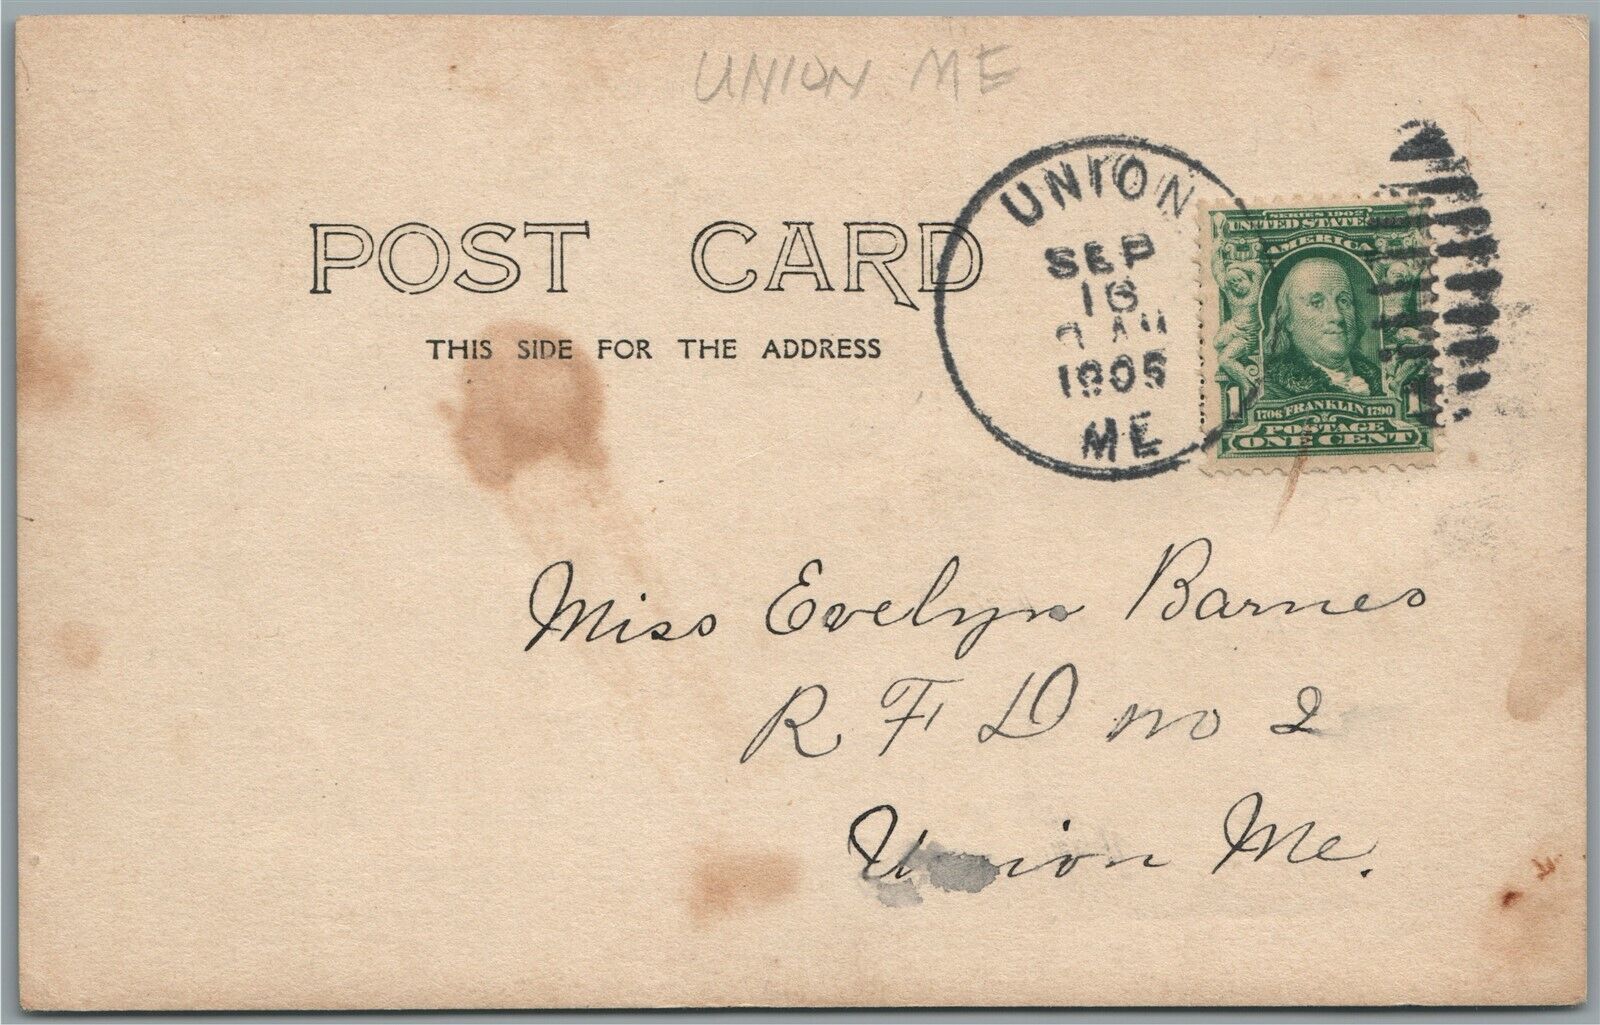 UNION ME
POST CARD
THIS SIDE FOR THE ADDRESS
UNION
SEP
AM
ME
SERIES 1902
UNITED STATES
AMERICA
1 1
1706 FRANKLIN 1790
POSTAGE
ONE CENT
Miss Evelyn Barnes
R F D no 2
Union Me.